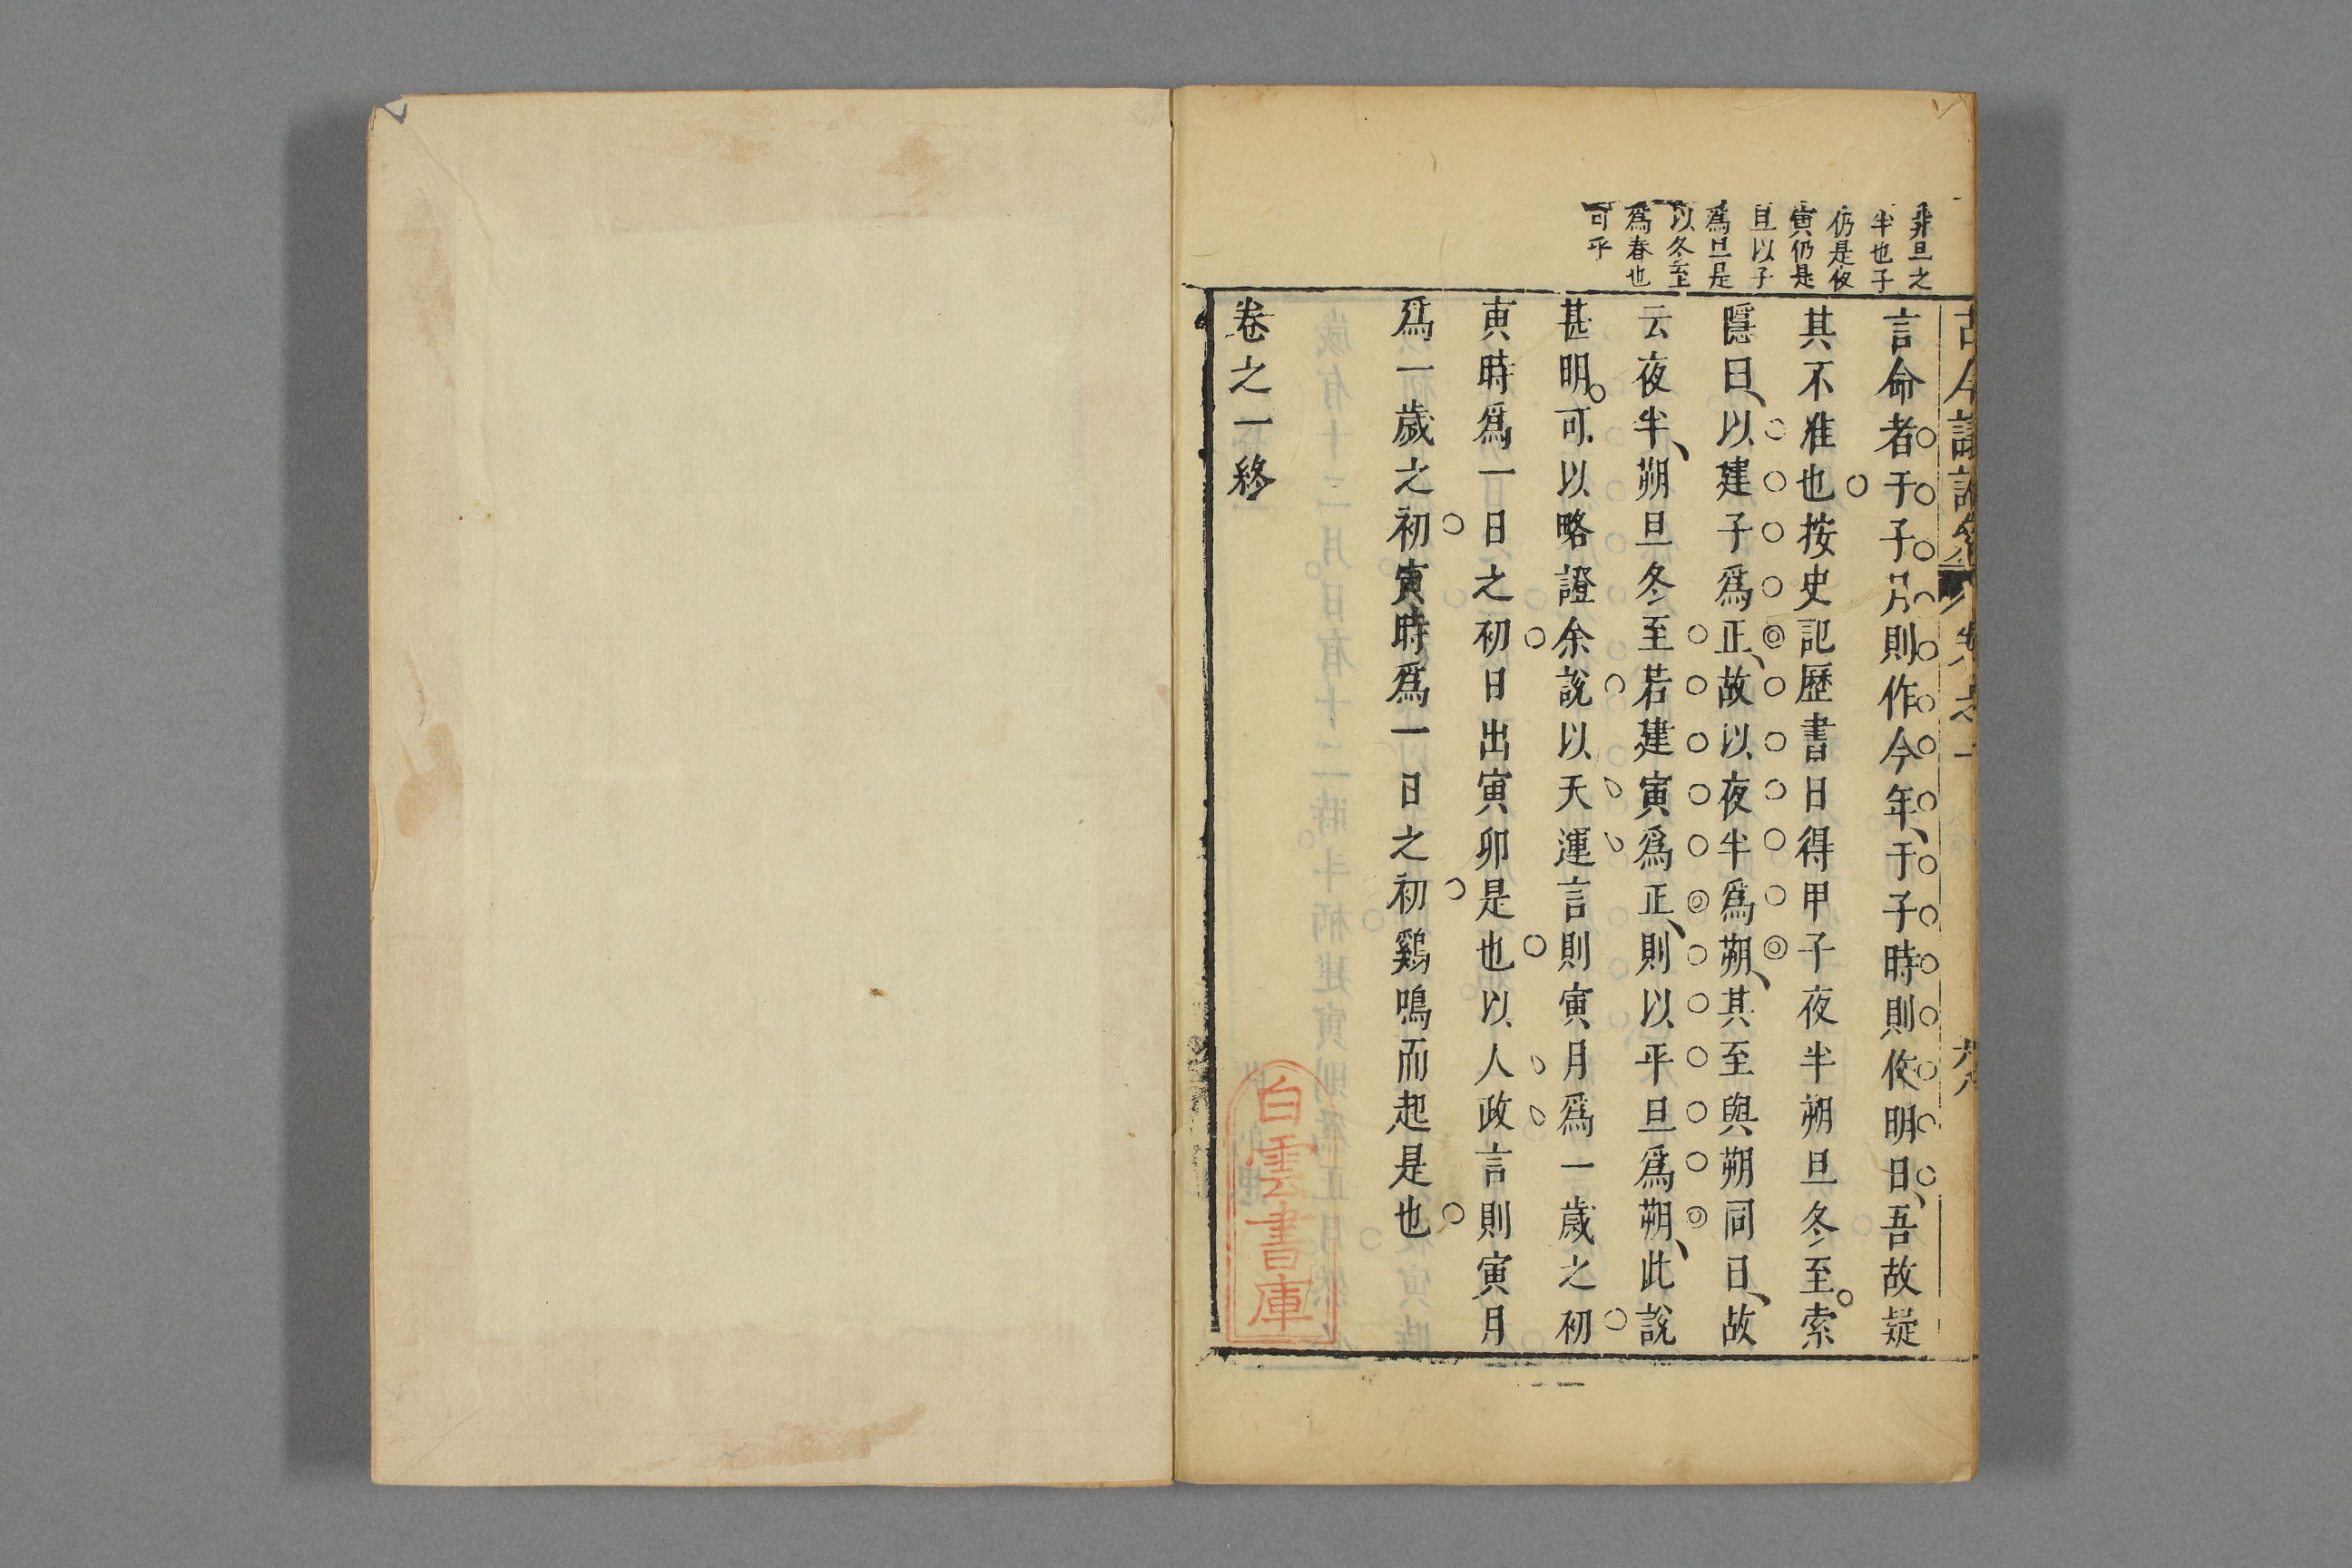 非旦之
半也子
仍是夜
寅仍是
旦以子
爲旦是
以冬至
爲春也
可乎
言命者于子月則作今年、于子時則作明日、吾故疑
其不准也按史記歷書日得甲子夜半朔旦冬至。索
隱曰、以建子爲正、故以夜半爲朔、其至與朔同日、故
云夜半、朔旦冬至若建寅爲正、則以平旦爲朔、此說
甚明。可以略證余說以天運言則寅月爲一歲之初
寅時爲一日之初日出寅卯是也以人政言則寅月
爲一歲之初寅時爲一日之初鷄鳴而起是也
卷之一終
白雲書庫